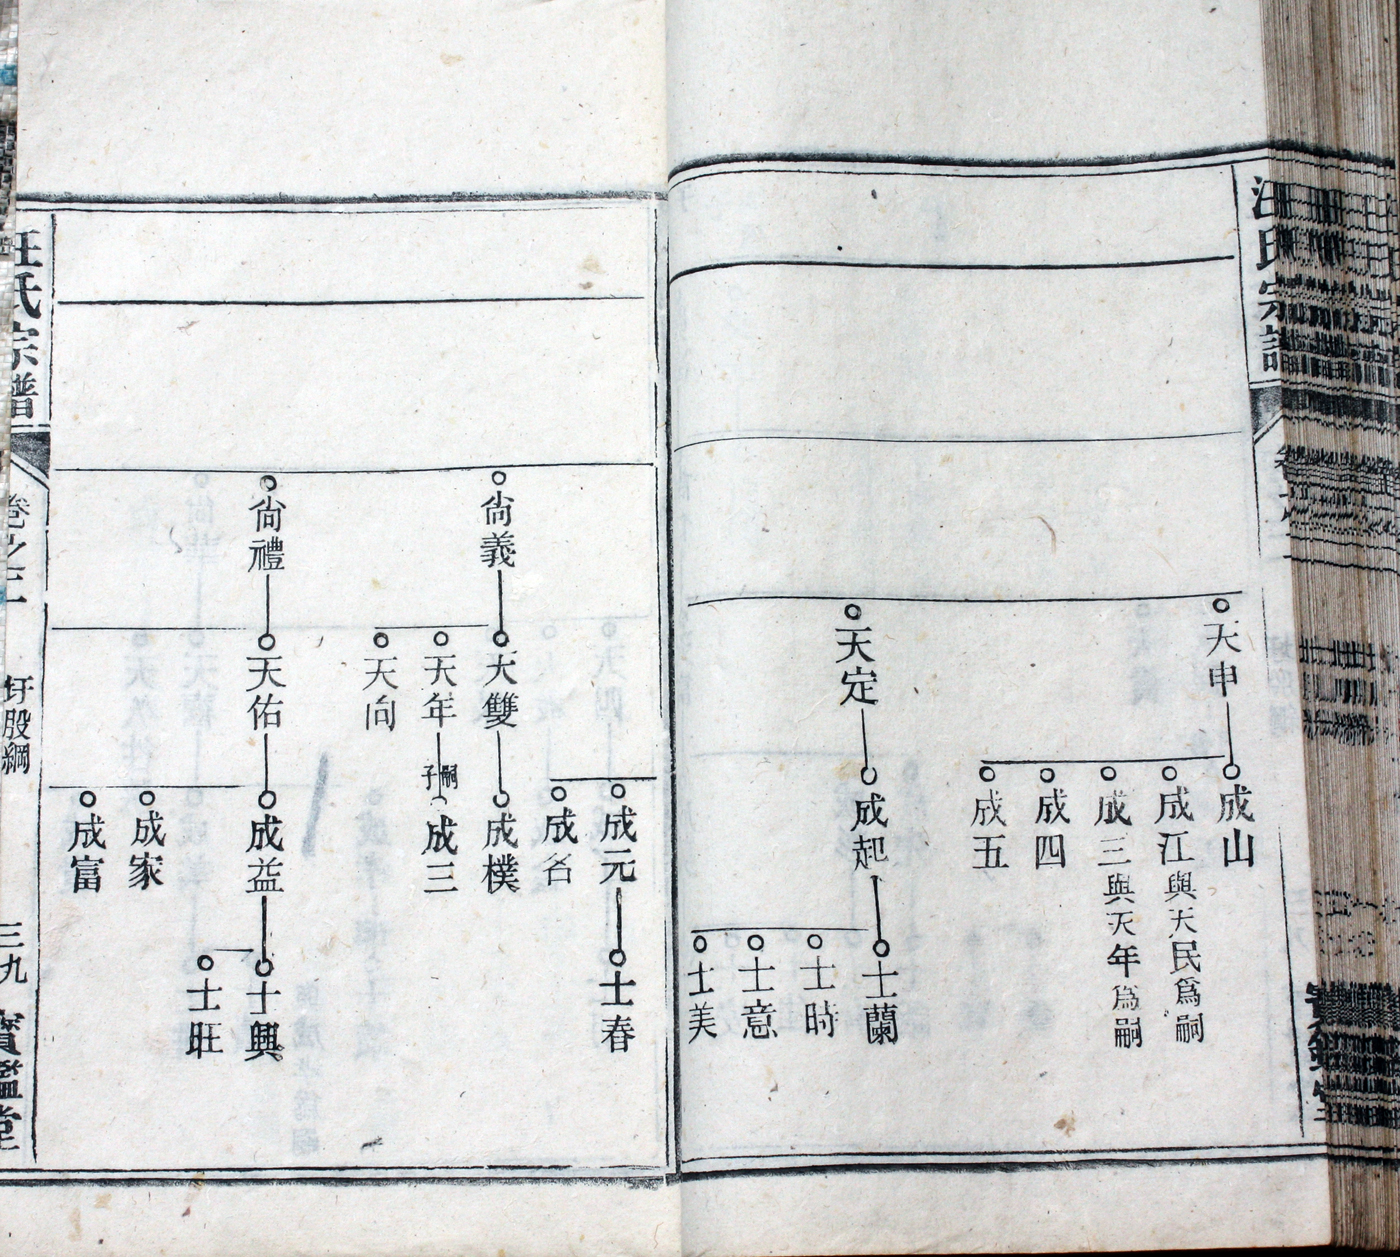 汪氏宗譜
天申
成山
成江與天民爲嗣
成三與天年爲嗣
成四
成五
天定
成起
士蘭
士時
士意
士美
成元
士春
成名
尙義
天雙
成樸
天年
嗣子
成三
天向
尙禮
天佑
成益
士興
士旺
成家
成富
汪氏宗譜
卷之二
圩股綱
三九
寶鑑堂